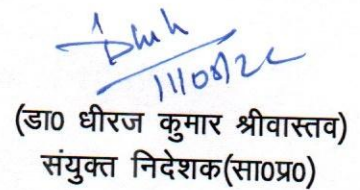 11/08/22
(डा0 धीरज कुमार श्रीवास्तव)
संयुक्त निदेशक(सा0प्र0)